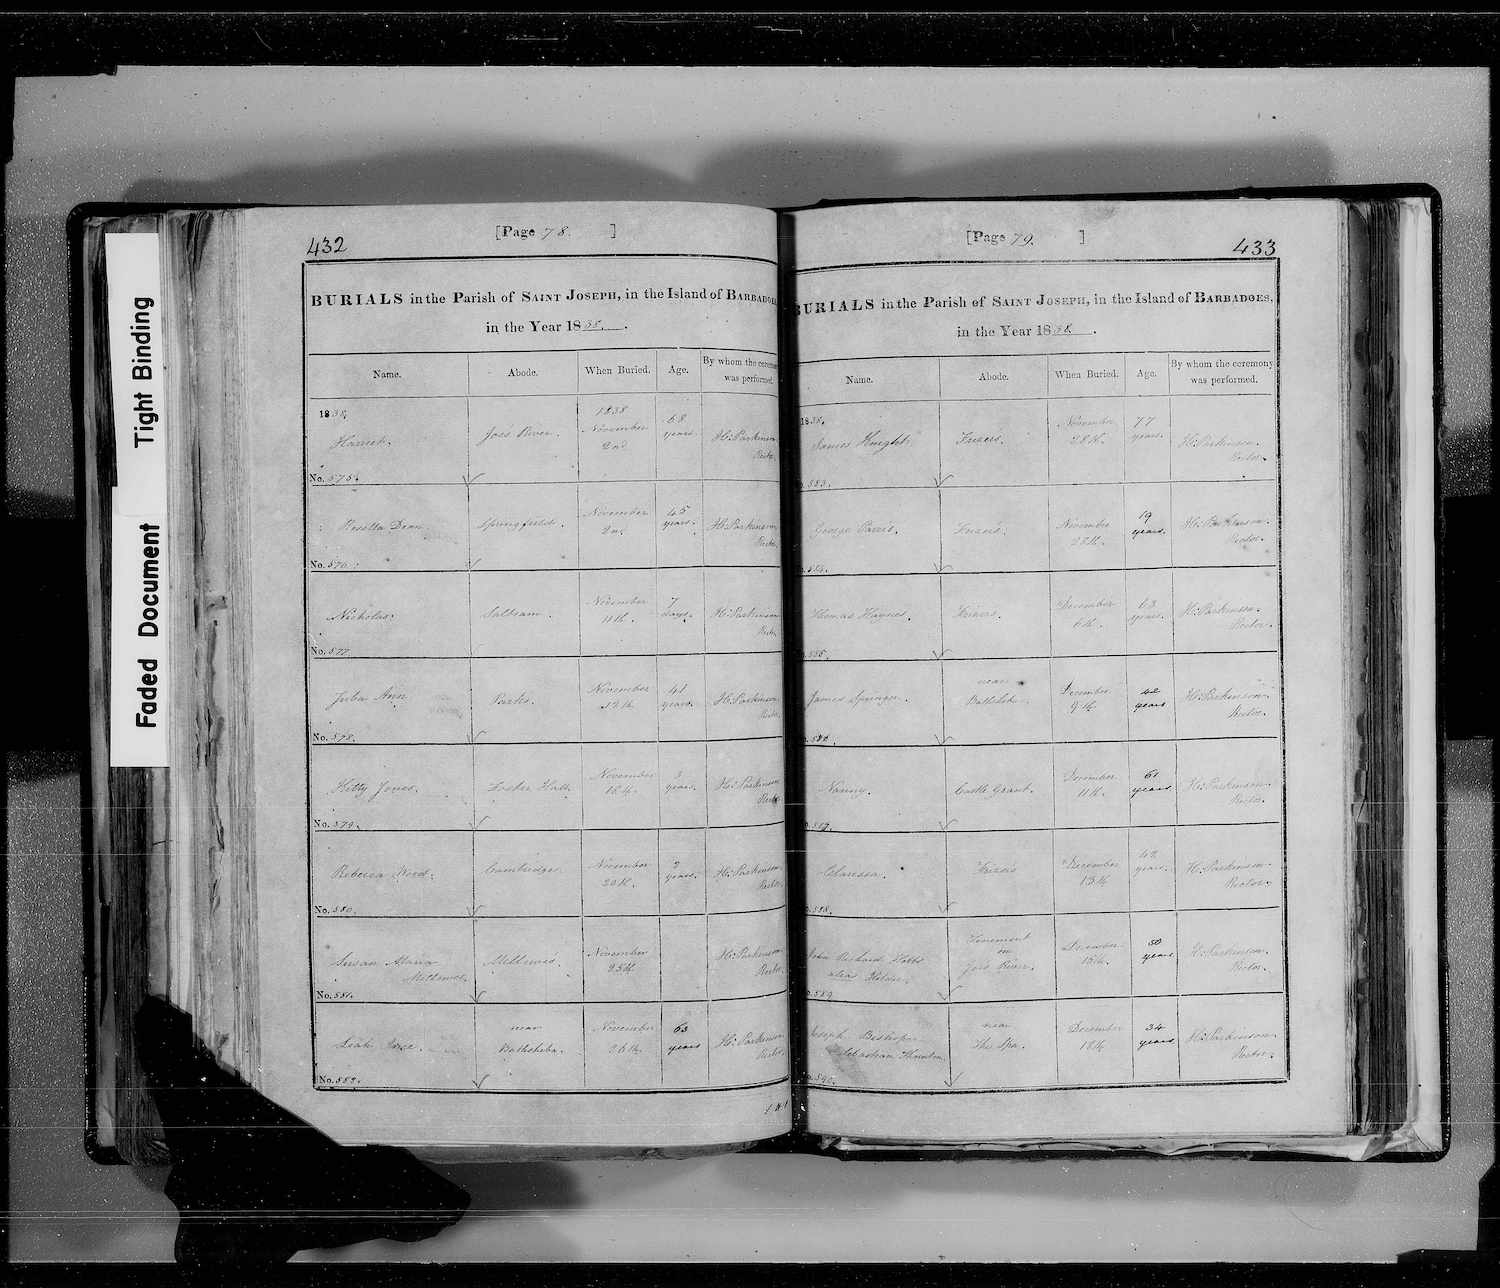 Tight Binding
Faded Document
432
[Page 78. ]
BURIALS in the Parish of SAINT JOSEPH, in the Island of BARBADOES,
in the Year 1838.
Name. Abode. When Buried. Age. By whom the ceremony
was performed.
1838. 1838
Harriet. Joes River. November 2nd 68 years. H: Parkinson Rector.
No. 575.
Rosetta Dean Springfield. November 2nd 45 years. H: Parkinson Rector.
No. 576.
Nicholas. November 11th. 7 days. H: Parkinson Rector.
No. 577
Juba Ann Parks. November 12th 41 years. H: Parkinson Rector.
No. 578.
Kitty Jones. Foster Hall. November 18th. 3 years. H: Parkinson Rector.
No. 579.
Rebecca Word. Cambridge. November 20th. 2 years. H: Parkinson Rector.
No. 580.
Susan Maria November 25th H: Parkinson Rector.
No. 581.
Leah near Bathsheba. November 26th. 63 years H: Parkinson Rector.
No. 582.
433
[Page 79. ]
BURIALS in the Parish of SAINT JOSEPH, in the Island of BARBADOES,
in the Year 1838.
Name. Abode. When Buried. Age. By whom the ceremony
was performed.
1838.
James Knight. Frizers. November 28th. 77 years. H: Parkinson. Rector.
583.
George Parris. Frizers. November 28th. 19 years. H: Parkinson. Rector.
584.
Thomas Haynes. Frizers. December 6th. 63 years. H: Parkinson. Rector.
585.
James Springer. near Bathsheba. December 9th 42 years H: Parkinson. Rector.
586.
Nanny. Castle Grant. December 11th. 61 years H: Parkinson. Rector.
587.
Clarissa. Frizers December 13th 42 years. H: Parkinson. Rector.
588.
Richard Hobbs Tenement in Joes River. December 50 years H: Parkinson. Rector.
alias Holder.
589
Joseph near The Spa. December 18th 34 years H: Parkinson. Rector.
Sebastian Thornton.
590.